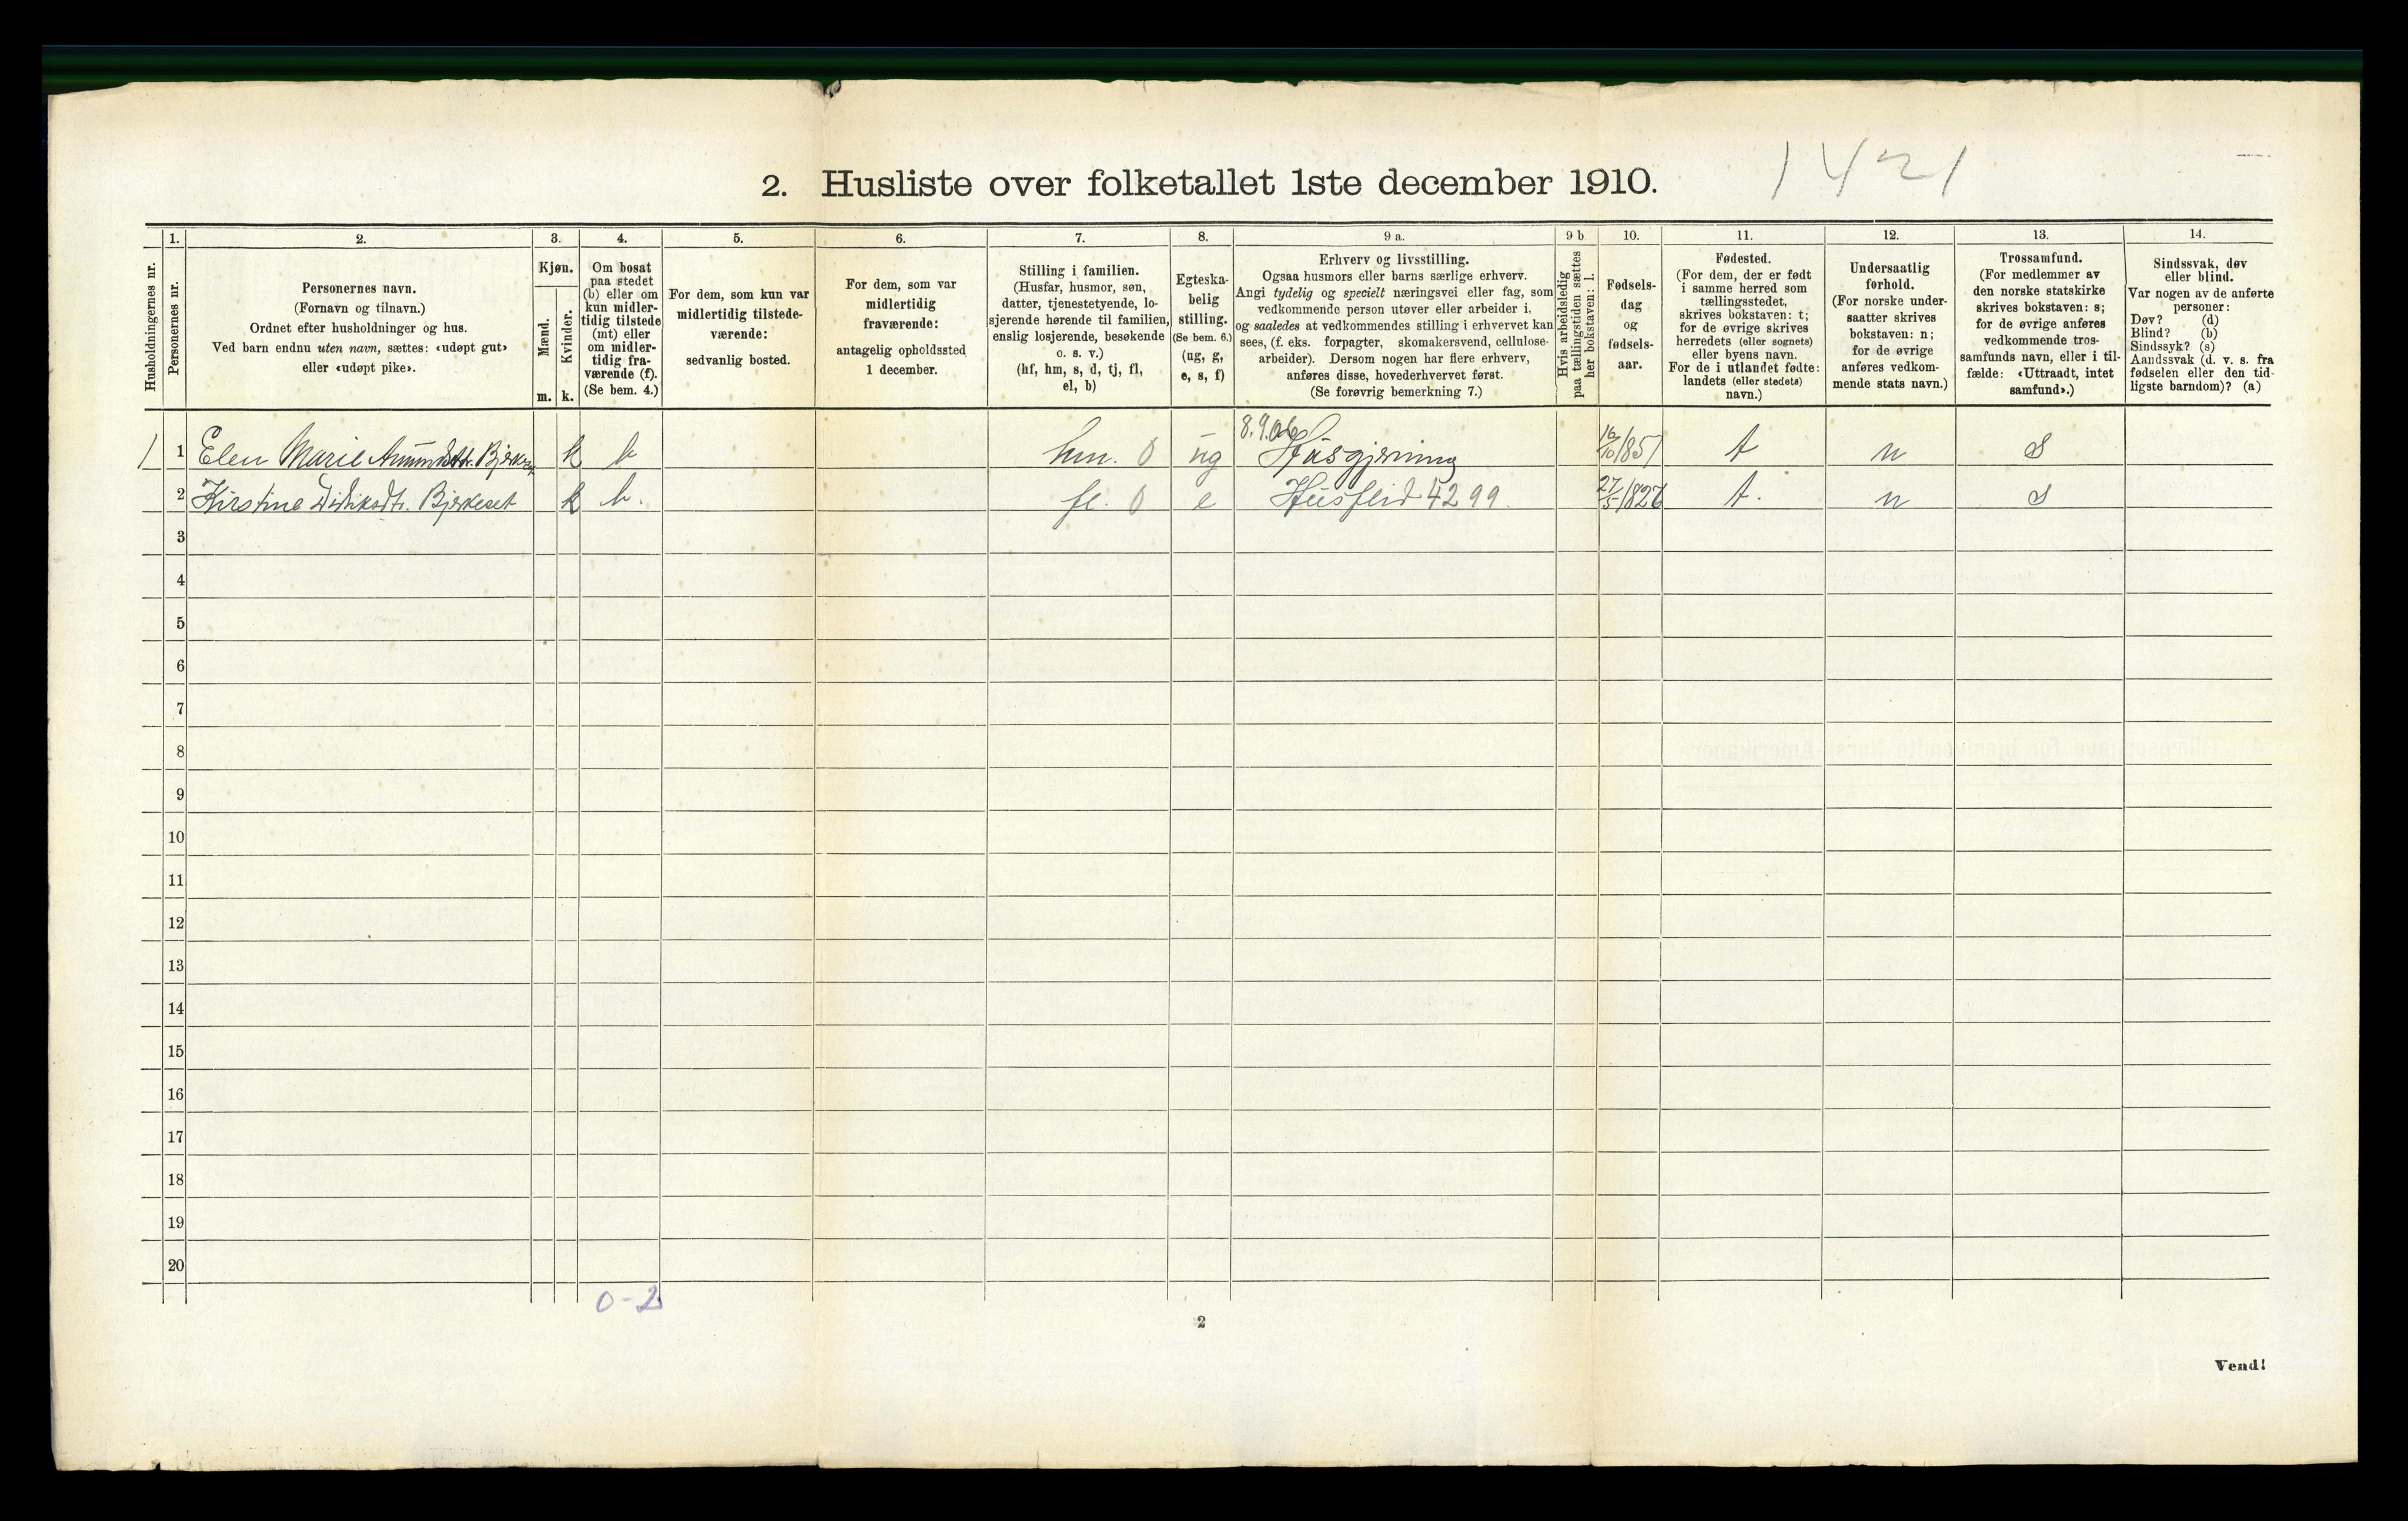 2. Husliste over folketallet 1ste december 1910.
1421
Husholdningernes nr.
1.
Personernes nr.
2.
Personernes navn.
(Fornavn og tilnavn.)
Ordnet efter husholdninger og hus.
Ved barn endnu uten navn, sættes: «udøpt gut»
eller «udøpt pike».
3.
Kjøn.
Mænd.
Kvinder.
m. k.
4.
Om bosat
paa stedet
(b) eller om
kun midler-
tidig tilstede
(mt) eller
om midler-
tidig fra-
værende (f).
(Se bem. 4.)
5.
For dem, som kun var
midlertidig tilstede-
værende:
sedvanlig bosted.
6.
For dem, som var
midlertidig
fraværende:
antagelig opholdssted
1 december.
7.
Stilling i familien.
(Husfar, husmor, søn,
datter, tjenestetyende, lo-
sjerende hørende til familien,
enslig losjerende, besøkende
o. s. v.)
(hf, hm, s, d, tj, fl,
el, b)
8.
Egteska-
belig
stilling.
(Se bem. 6.)
(ug, g,
e, s, f)
9 a.
Erhverv og livsstilling.
Ogsaa husmors eller barns særlige erhverv.
Angi tydelig og specielt næringsvei eller fag, som
vedkommende person utøver eller arbeider i,
og saaledes at vedkommendes stilling i erhvervet kan
sees, (f. eks. forpagter, skomakersvend, cellulose-
arbeider). Dersom nogen har flere erhverv,
anføres disse, hovederhvervet først.
(Se forøvrig bemerkning 7.)
9 b
Hvis arbeidsledig
paa tællingstiden sættes
her bokstaven: l.
10.
Fødsels-
dag
og
fødsels-
aar.
11.
Fødested.
(For dem, der er født
i samme herred som
tællingsstedet,
skrives bokstaven: t;
for de øvrige skrives
herredets (eller sognets)
eller byens navn.
For de i utlandet fødte:
landets (eller stedets)
navn.)
12.
Undersaatlig
forhold.
(For norske under-
saatter skrives
bokstaven: n;
for de øvrige
anføres vedkom-
mende stats navn.)
13.
Trossamfund.
(For medlemmer av
den norske statskirke
skrives bokstaven: s;
for de øvrige anføres
vedkommende tros-
samfunds navn, eller i til-
fælde: «Uttraadt, intet
samfund».)
14.
Sindssvak, døv
eller blind.
Var nogen av de anførte
personer:
Døv? (d)
Blind? (b)
Sindssyk? (s)
Aandssvak (d. v. s. fra
fødselen eller den tid-
ligste barndom)? (a)
1 1 Elen Marie k b hm. 0 ug Husgjerning 16/10 1851 t n s
2 Kirstine Didriksdtr. Bjerkeset k b. fl. 0 e Husflid 4299. 27/5 1826 t. n s
3
4
5
6
7
8
9
10
11
12
13
14
15
16
17
18
19
20
0-2
2
Vend!